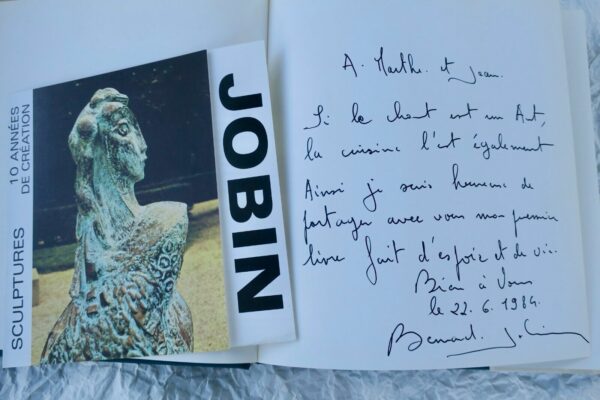 SCULPTURES
10 ANNÉES
DE CRÉATION
JOBIN
A. Marthe. et Jean.
Si le chant est un Art,
la cuisine l'est également
Ainsi je suis heureux de
partager avec vous mon premier
livre fait d'espoir et de vie.
Bien à Vous
le 22. 6. 1984.
Bernard. Jobin